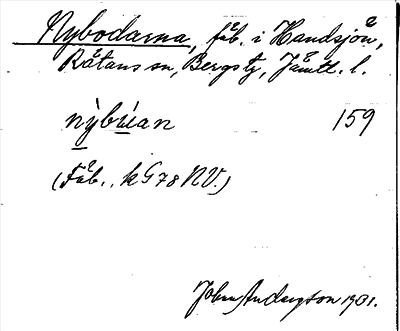 Nybodarna, fäb. i Handsjön,
Rätans sn, Bergs tg, Jämtl. l.
nỳbúan 159
(Fäb., kG78 NV.)
John Anderzon 1931.